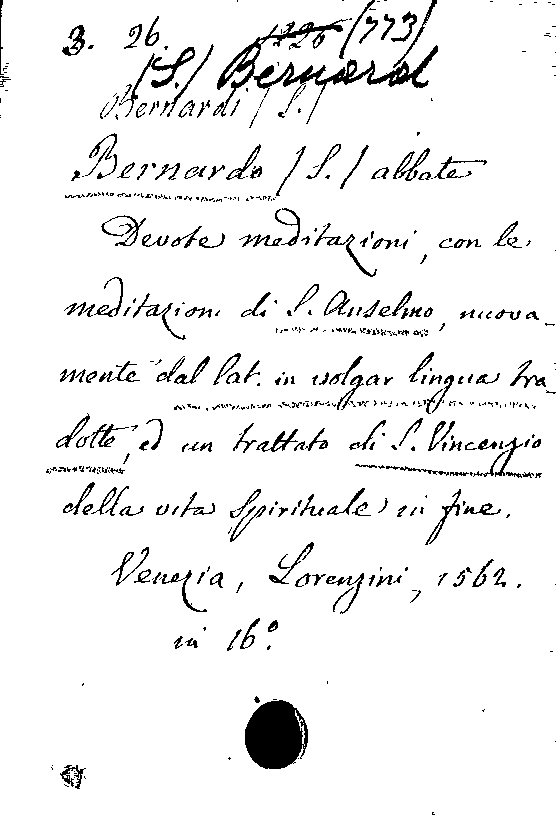 3. 26. 1226 (773)
(S.) Bernard
Bernardi (S.)
Bernardo (S.) abbate
Devote meditazioni, con le
meditazioni di S. Anselmo, nuova-
mente dal lat. in volgar lingua tra
dotte, ed un trattato di S. Vincenzio
della vita spirituale in fine.
Venezia, Lorenzini, 1562.
in 16°.